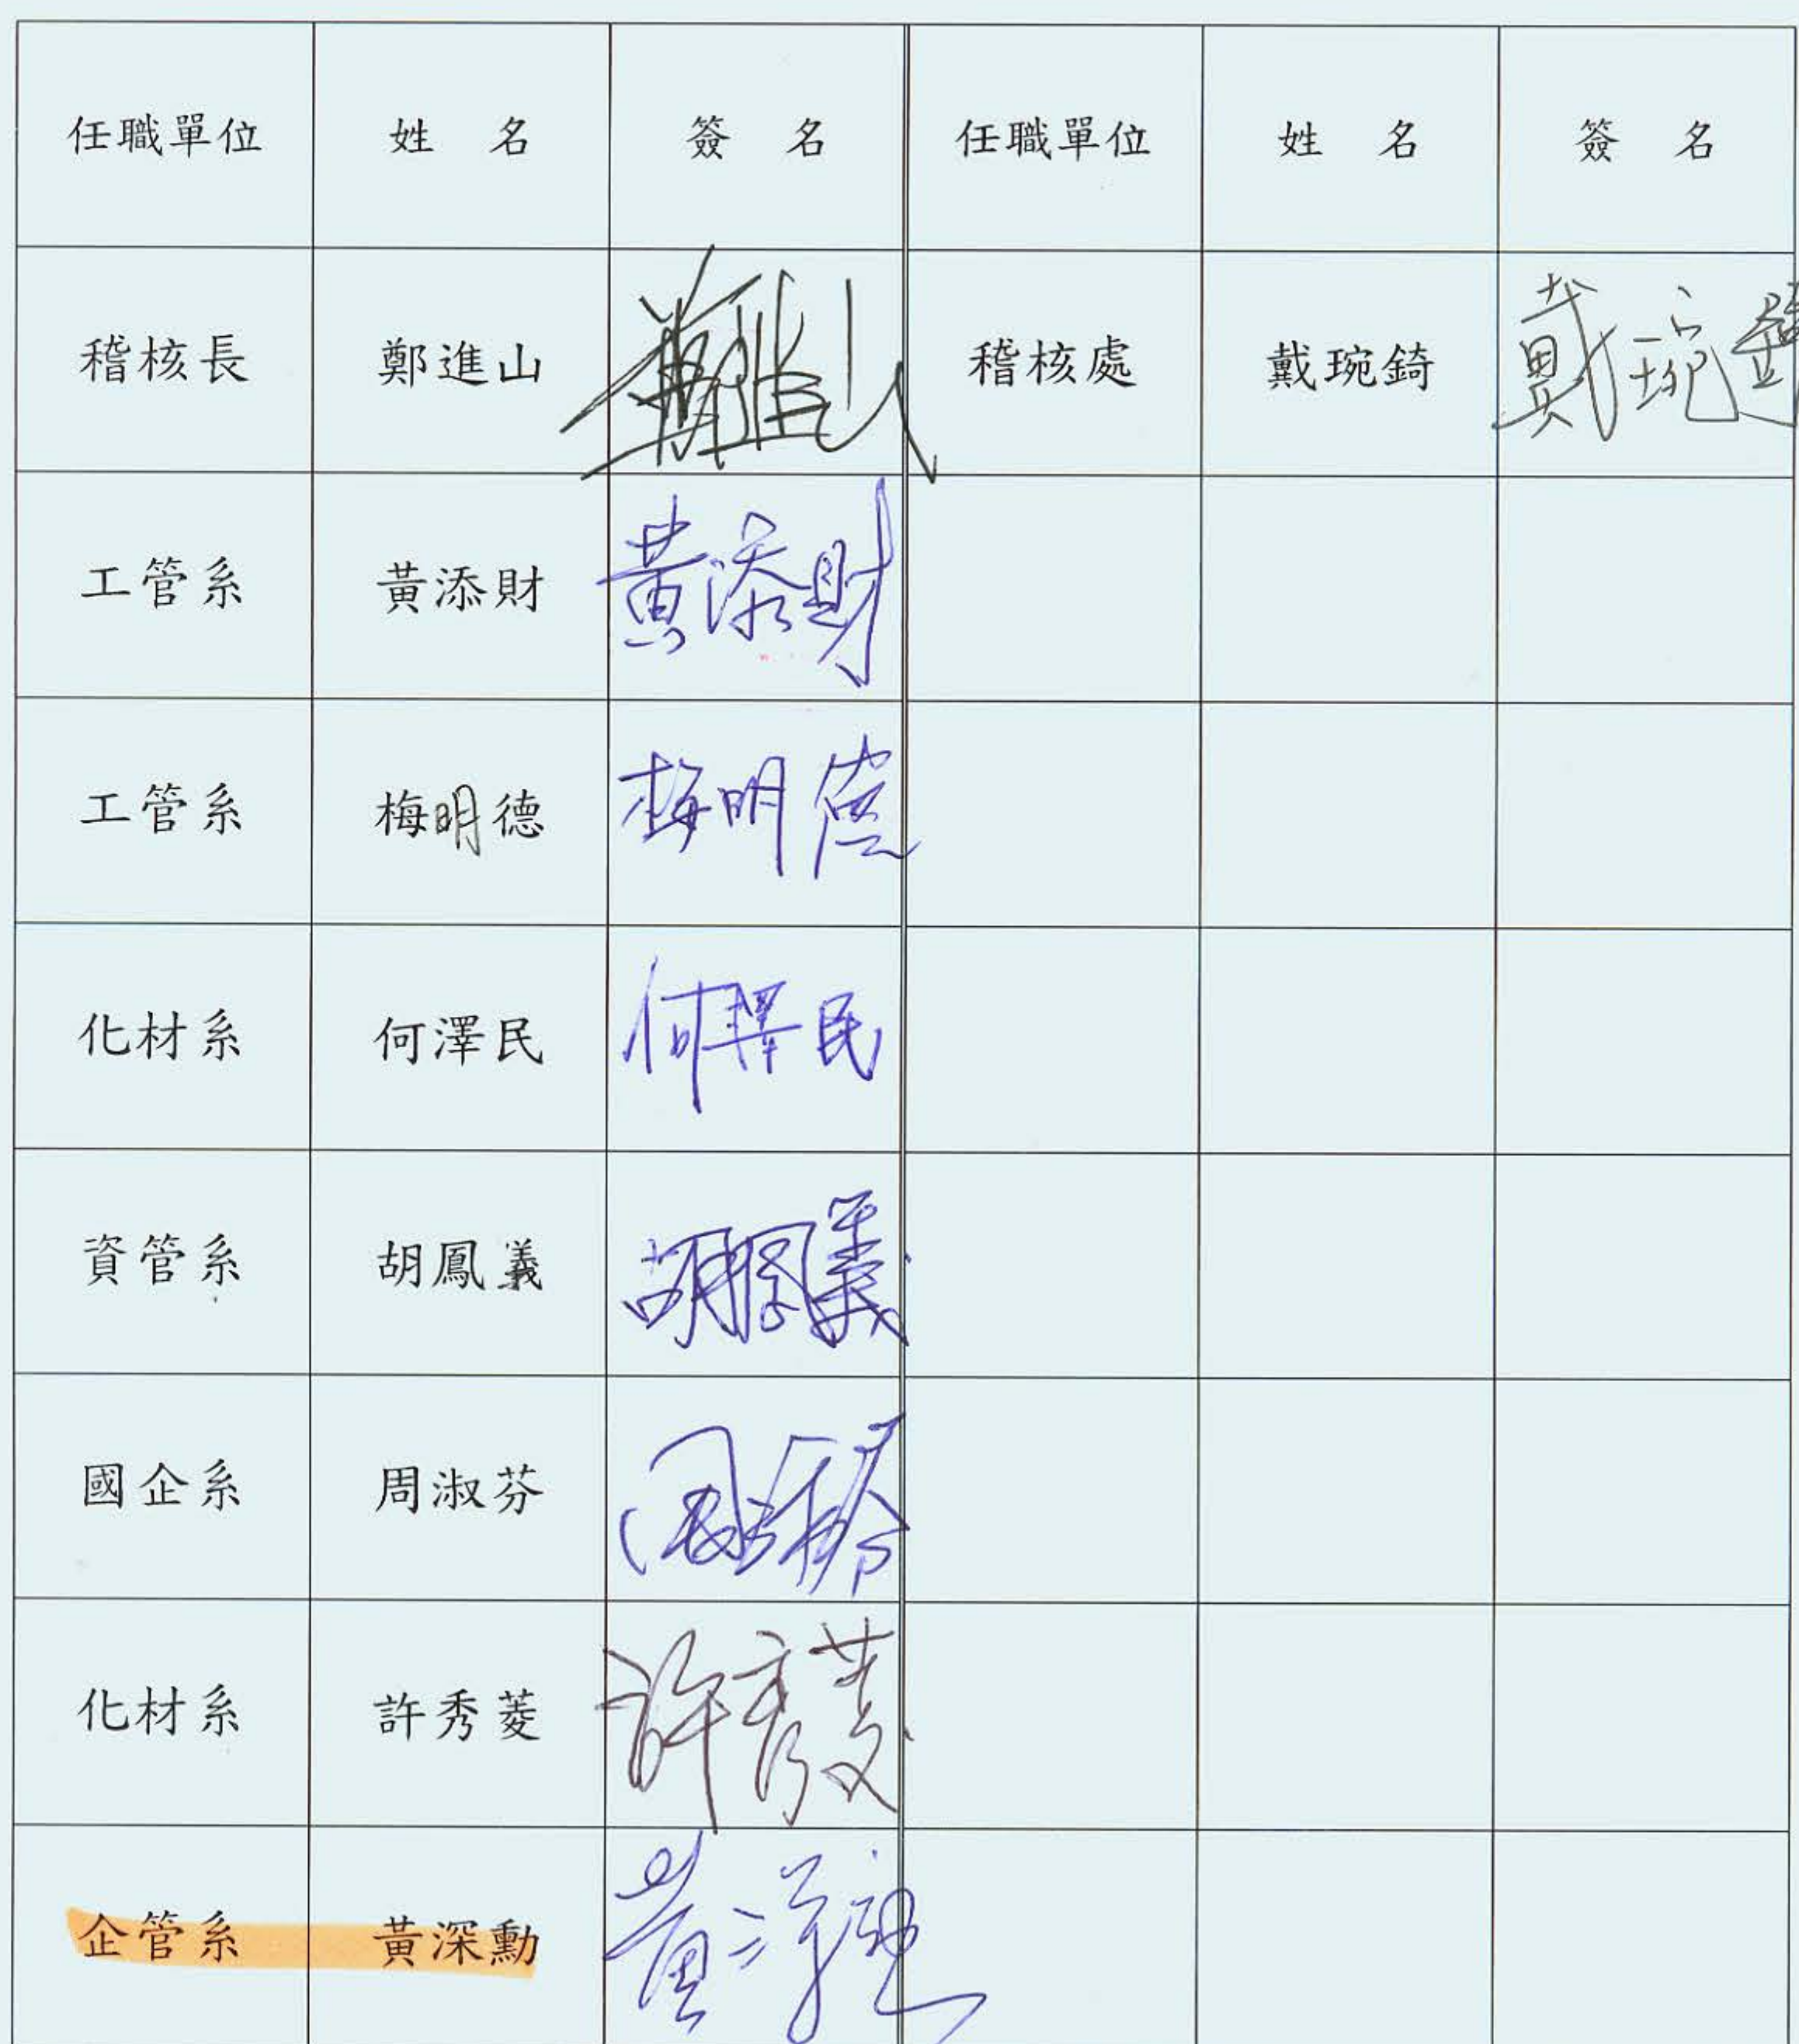 任職單位 姓 名 簽 名 任職單位 姓 名 簽 名
稽核長 鄭進山 鄭進山 稽核處 戴琬錡 戴琬錡
工管系 黃添財 黃添財
工管系 梅明德 梅明德
化材系 何澤民 何澤民
資管系 胡鳳義 胡鳳義
國企系 周淑芬 周淑芬
化材系 許秀菱 許秀菱
企管系 黃深勳